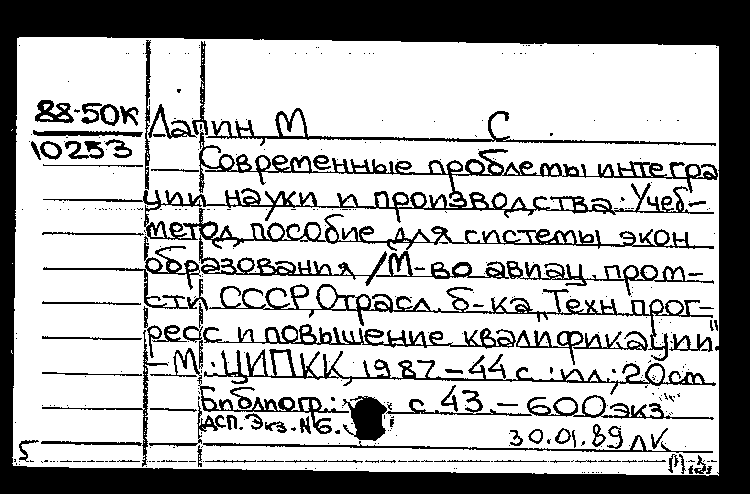 88-50К
10253
Лапин, М С.
Современные проблемы интегра
ции науки и производства: Учеб-
метод, пособие для системы экон
образования /М-во авиац. пром-
сти СССР, Отрасл. б-ка „Техн прог-
ресс и повышение квалификации".
- М.: ЦИПКК, 1987 - 44 с.: ил.; 20 ст
Библиогр.: с. 43. - 600 экз.
ДСП. Экз. N 6.
30.01.89 ЛК
5